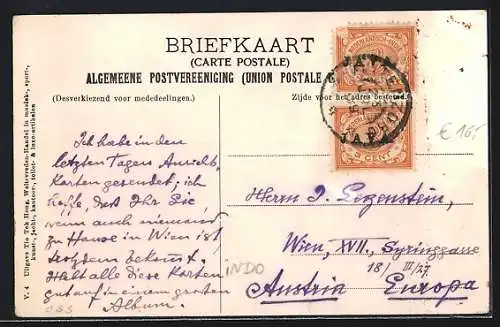 BRIEFKAART
(CARTE POSTALE)
ALGEMEENE POSTVEREENIGING (UNION POSTALE
(Desverkiezend voor mededeelingen.)
Zijde voor het adres bestemd.
Ich habe in den
letzten Tagen Ansichts
Karten gesendet; ich
hoffe, dass Ihr Sie,
wenn auch niemand
zu Hause in Wien ist,
trotzdem bekommt.
Hebt alle diese Karten
gut auf in einem grossen
Album.
INDO
Herrn J.
Wien, XVII., Syringgasse
18/ III/27.
Austria Europa
€ 16,-
5 CENT
V. 4 Uitgave Tio Tek Hong, Weltevreden-Handel in muziek-, sport-,
kunst-, jacht-, kantoor-, toilet- & luxe-artikelen